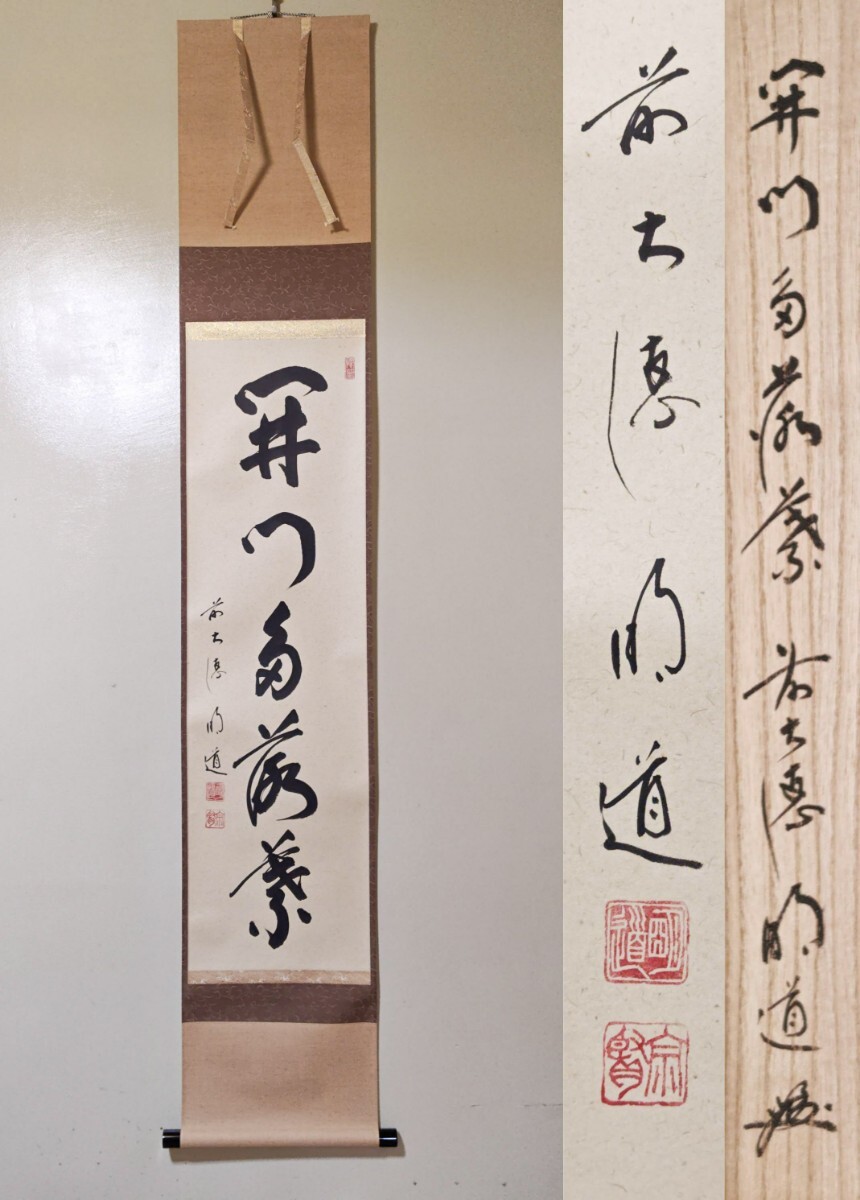 開門多落葉
前大徳明道
明道
宗賢
前大徳
明道
開門多落葉 前大徳 明道